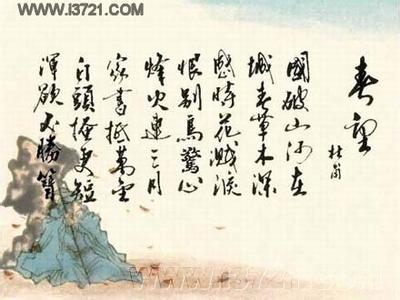 WWW.I3721.COM
春望
杜甫
國破山河在
城春草木深
感時花濺淚
恨別鳥驚心
烽火連三月
家書抵萬金
白頭搔更短
渾欲不勝簪